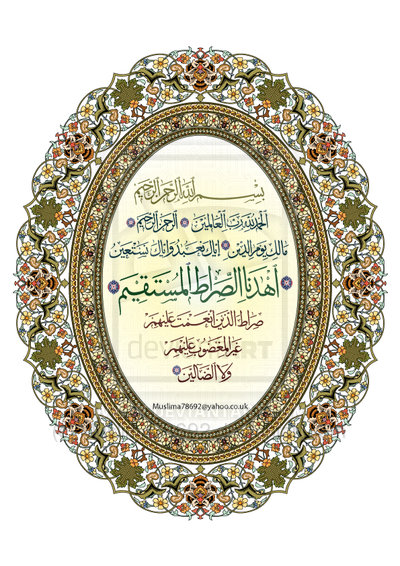 بسم الله الرحمن الرحيم
الحمد لله رب العالمين الرحمن الرحيم
مالك يوم الدين إياك نعبد وإياك نستعين
اهدنا الصراط المستقيم
صراط الذين أنعمت عليهم
غير المغضوب عليهم
ولا الضالين
Muslima78692@yahoo.co.uk